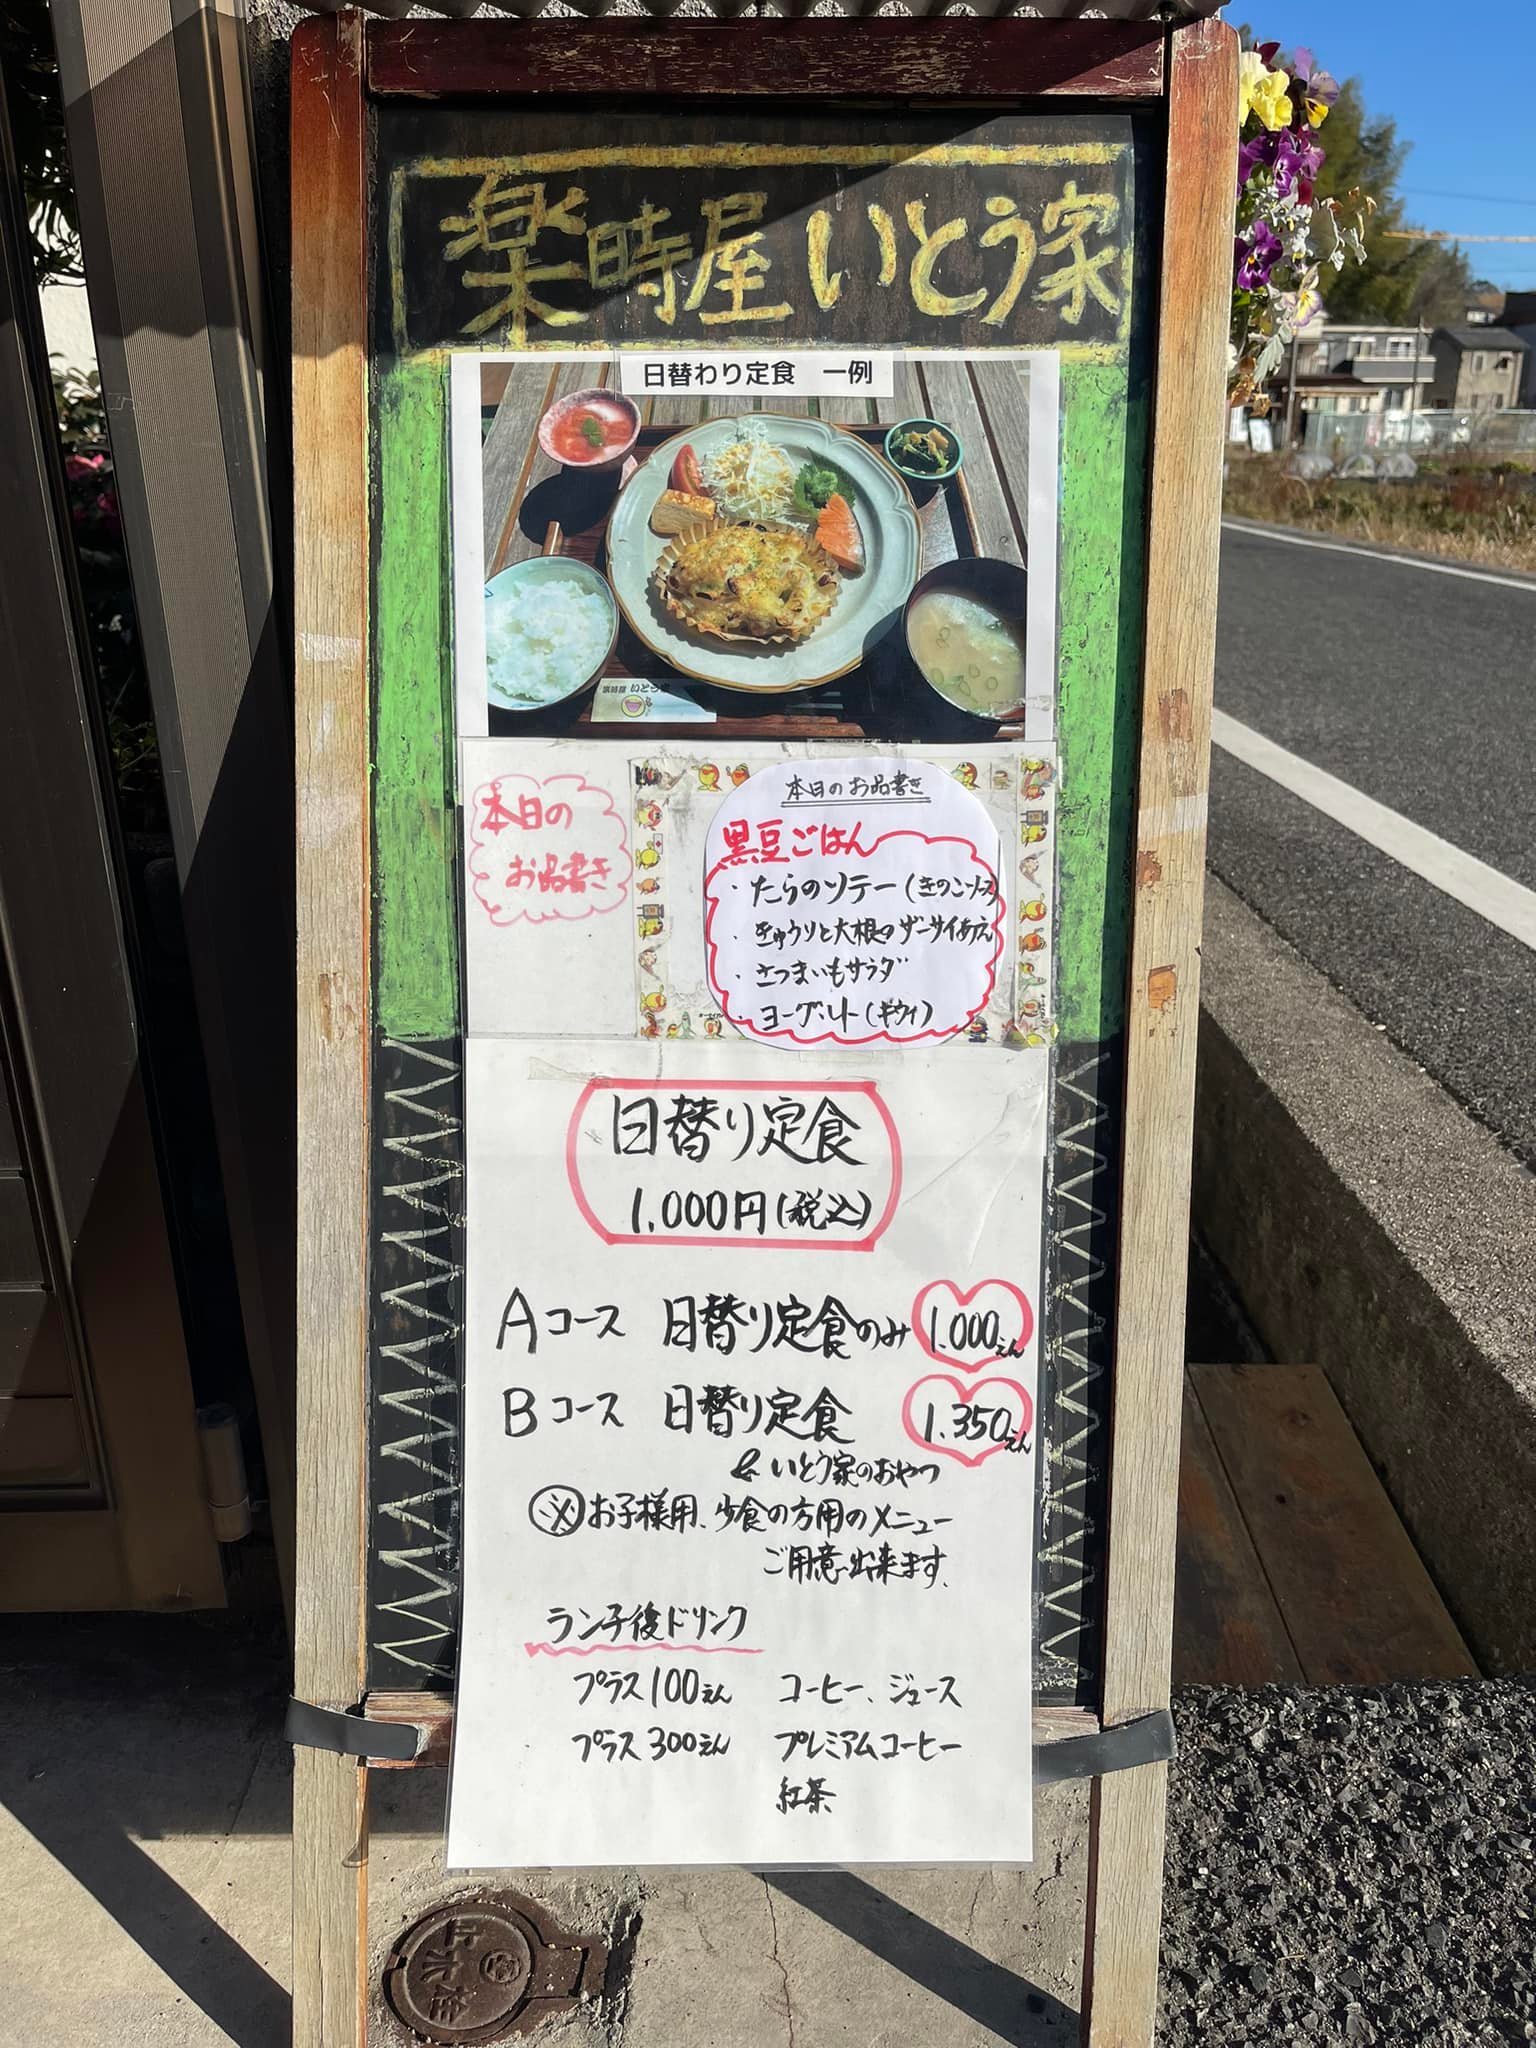 楽時屋 いとう家
日替わり定食 一例
楽時屋 いとう家
本日の
お品書き
本日のお品書き
黒豆ごはん
・たらのソテー(きのこソース)
・きゅうりと大根のザーサイあえ
・さつまいもサラダ
・ヨーグルト(キウイ)
日替り定食
1.000円(税込)
Aコース 日替り定食のみ 1.000えん
Bコース 日替り定食 1.350えん
& いとう家のおやつ
※お子様用、少食の方用のメニュー
ご用意出来ます。
ランチ後ドリンク
プラス100えん コーヒー、ジュース
プラス300えん プレミアムコーヒー
紅茶
止水栓